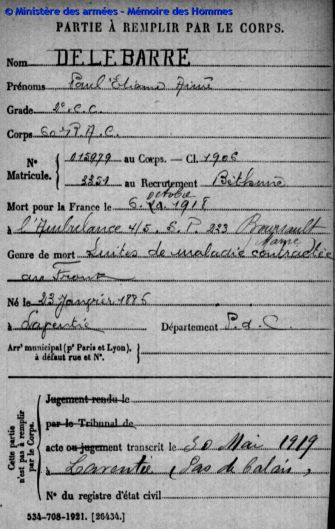 © Ministère des armées - Mémoire des Hommes
PARTIE À REMPLIR PAR LE CORPS.
Nom DELEBARRE
Prénoms Paul Etienne Aimé
Grade 2e C.C.
Corps 60e R.A.C.
N° Matricule. { 012979 au Corps. — Cl. 1906
3351 au Recrutement Béthune
Mort pour la France le 6 octobre 1918
à l'Ambulance 4/5, S.P. 233 Boursault
Marne
Genre de mort Suites de maladie contractée
au Front
Né le 23 Janvier 1886
à Laventie Département P.d.C.
Arrt municipal (pr Paris et Lyon), à défaut rue et N°. {
Cette partie n'est pas à remplir par le Corps.
Jugement rendu le
par le Tribunal de
acte ou jugement transcrit le 30 Mai 1919
à Laventie (Pas de Calais)
N° du registre d'état civil
534-708-1921. [26434.]